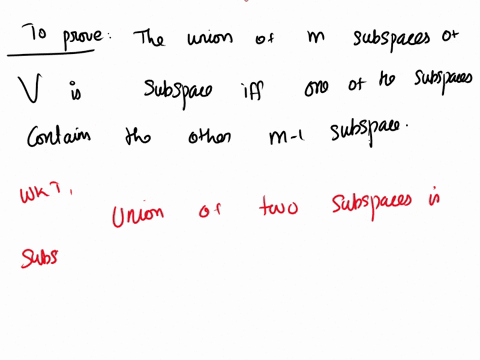 To prove: The union of m subspaces of
V is subspace iff one of he subspaces
Contain the other m-1 subspace.
WKT,
Union of two subspaces is
Subs